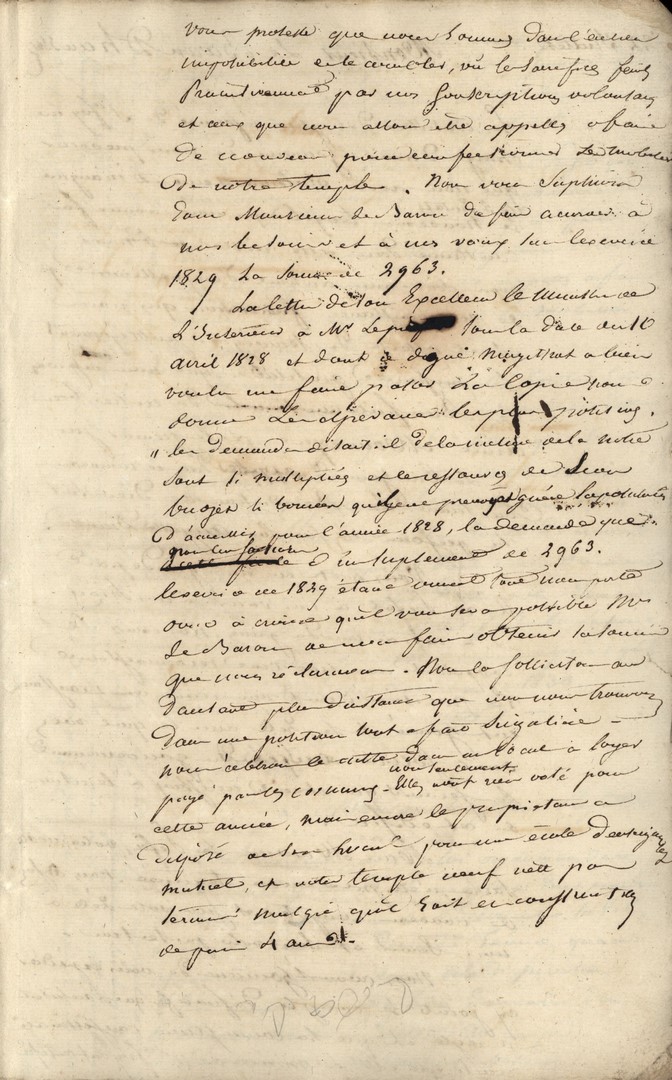 vous proteste que nous sommes dans l'entiere
impossibilité de le combler, vu les sacrifices faits
par nos souscriptions volontaires
et ceux que nous allons être appellés a faire
de nouveau pour confectionner le mobilier
de notre temple. Nous vous suplions
donc Monsieur le Baron de faire accorder à
nos besoins et à nos vœux sur l'exercice
1829 la somme de 2963.
La lettre de son Excellence le Ministre de
l'Interieur à Mr le sous la date du 10
avril 1828 et dont ce digne Magistrat a bien
voulu me faire passer la copie nous
donne les espérances les plus positives.
" les demandes disait-il de la nature de la notre
sont si multipliées et les ressources de mon
budjet si bornées qu'il ne prevoyait guère la possibilité
d'accueillir pour l'année 1828, la demande que
d'un suplement de 2963.
l'exercice de 1829 étant ouvert tout nous porte
à croire qu'il vous sera possible Mr
le Baron de nous faire obtenir la somme
que nous réclamons. Nous la sollicitons avec
d'autant plus d'instance que nous nous trouvons
dans une position tout a fait singulière
nous célébrons le culte dans un local à loyer
payé par les communes. non seulement Elles n'ont rien voté pour
cette année, mais encore le propriétaire a
disposé de son local pour une école d'enseignement
mutuel, et notre temple neuf n'est pas
terminé malgré qu'il soit en construction
depuis 4 ans.